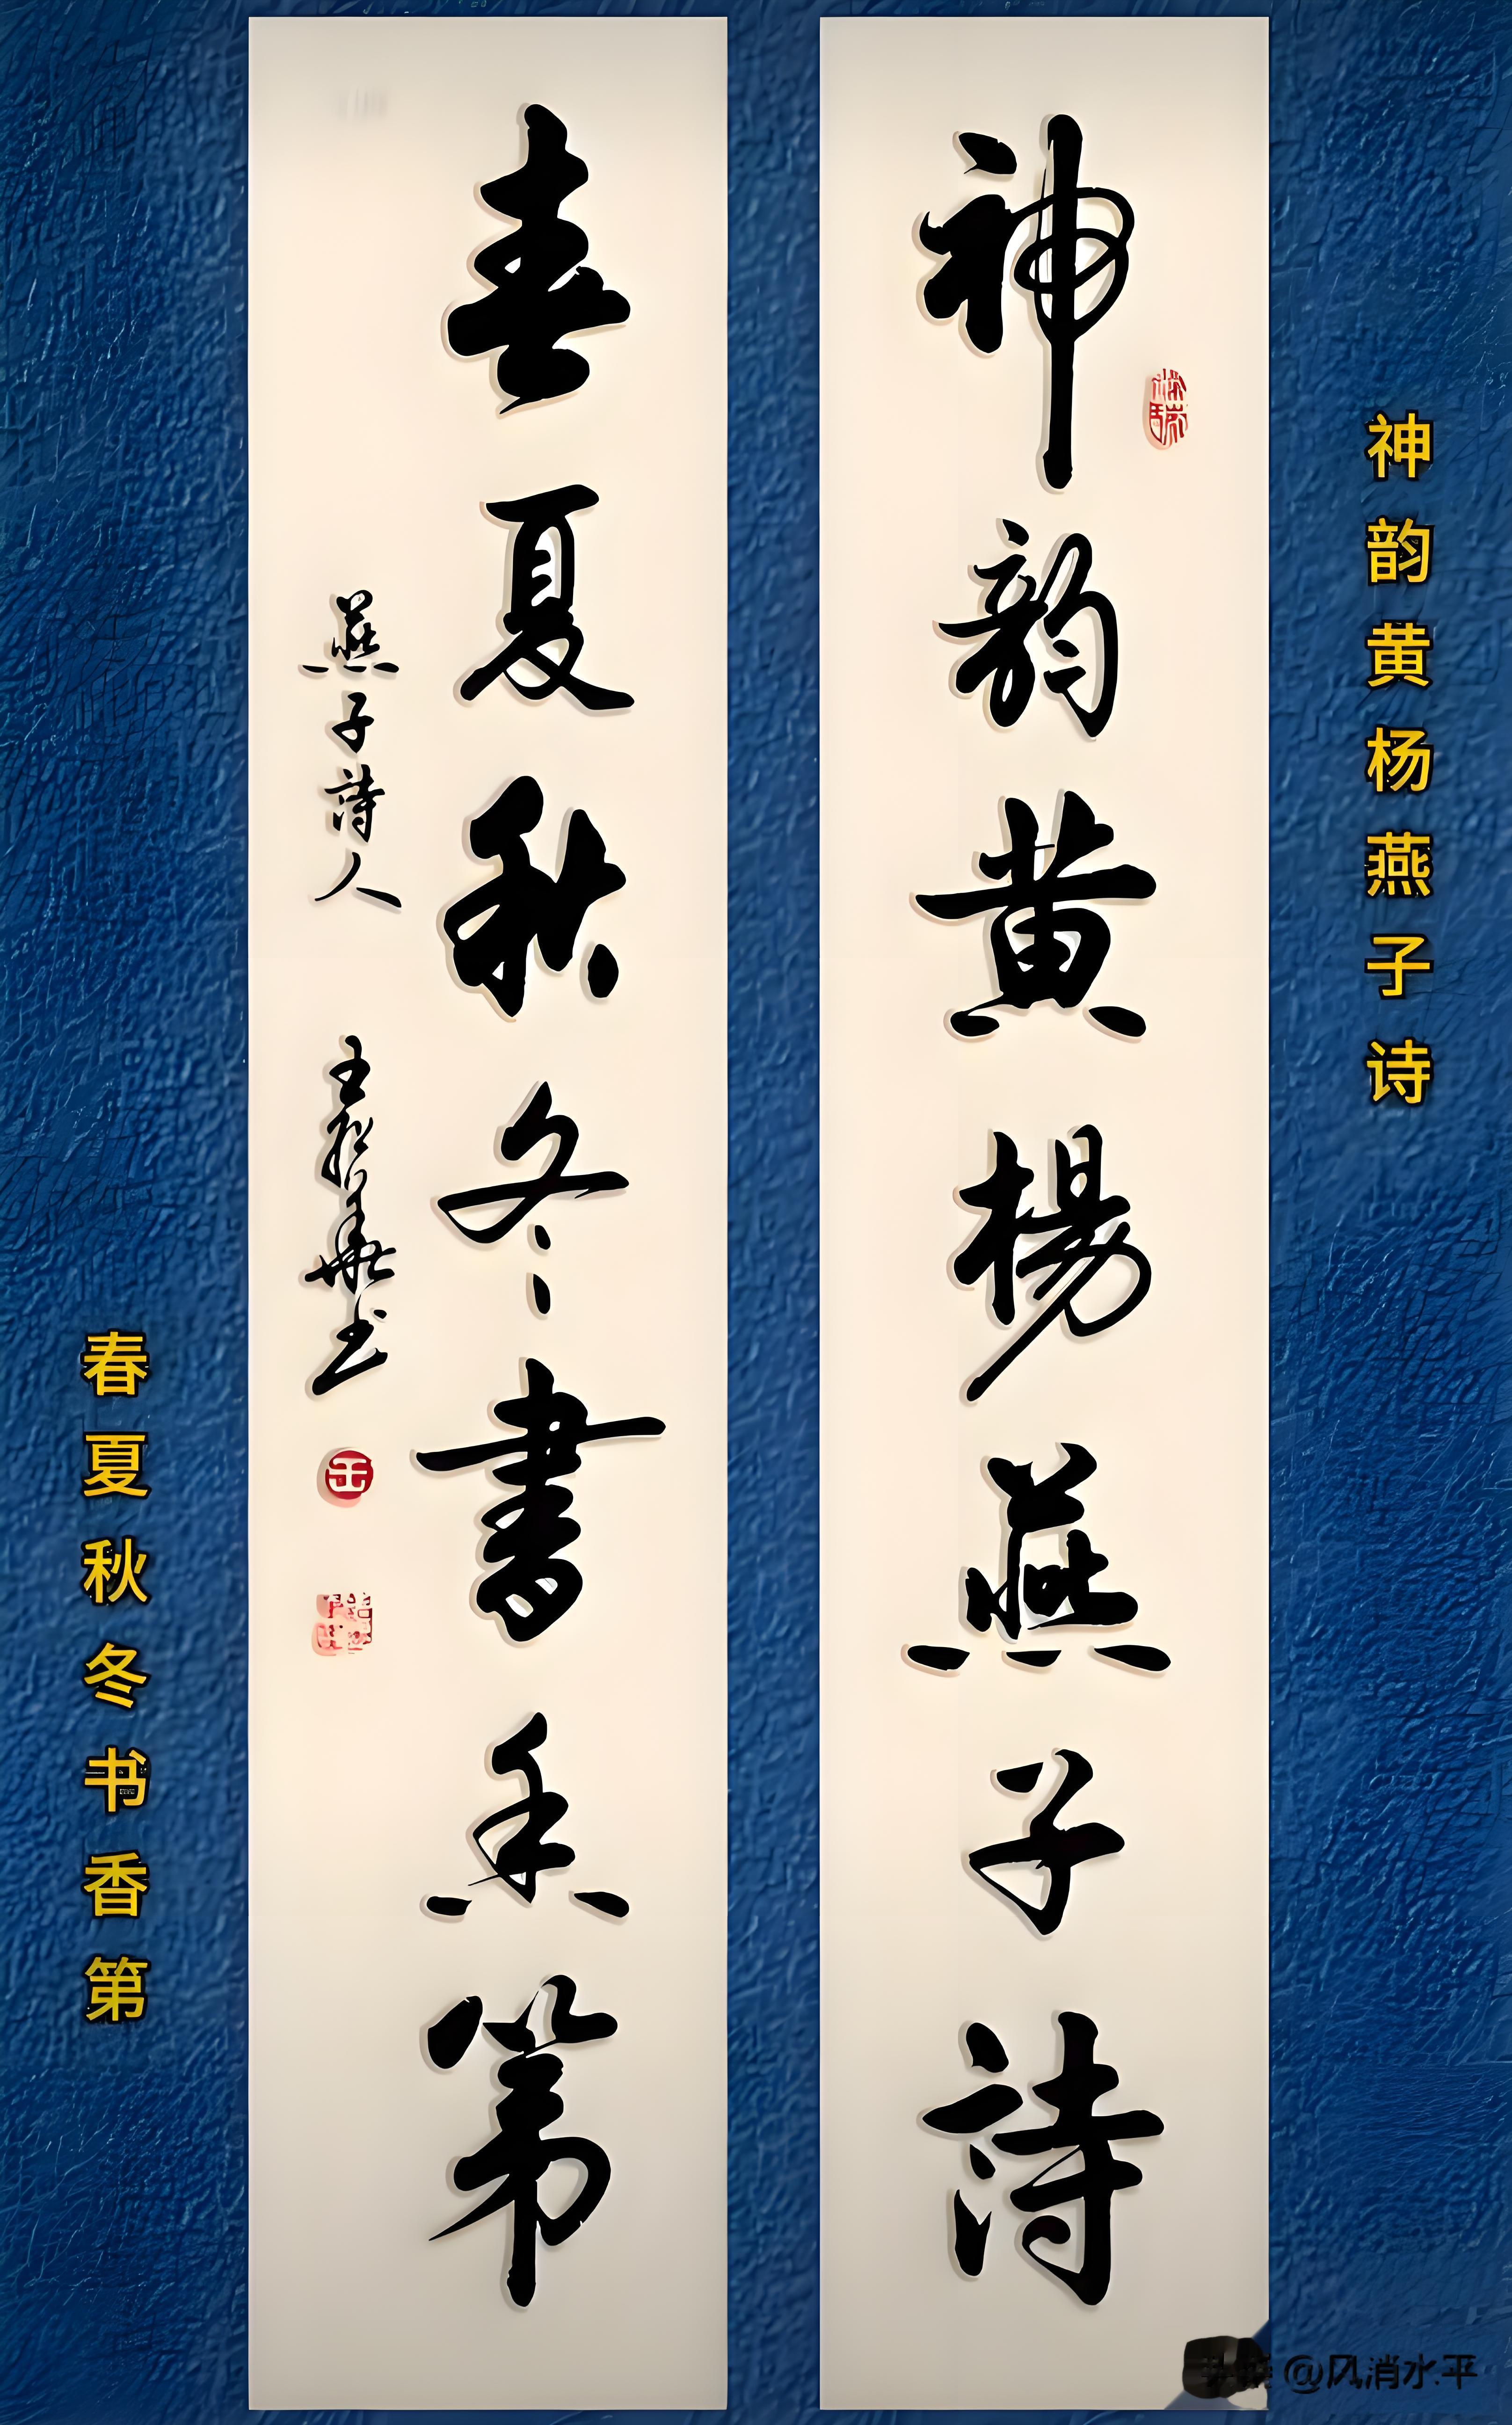 神韵黄杨燕子诗
神韵黄楊燕子詩
春夏秋冬書香第
燕子詩人
王
书
王
春夏秋冬书香第
@风消水平